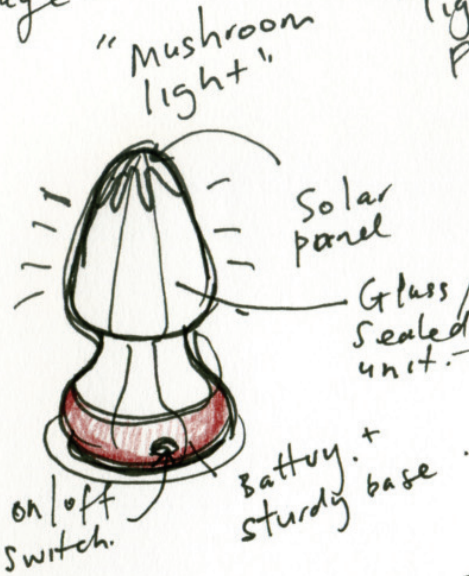 "Mushroom
light"
Solar
panel
Glass /
Sealed
unit.
Battery. +
sturdy base
on/off
switch.